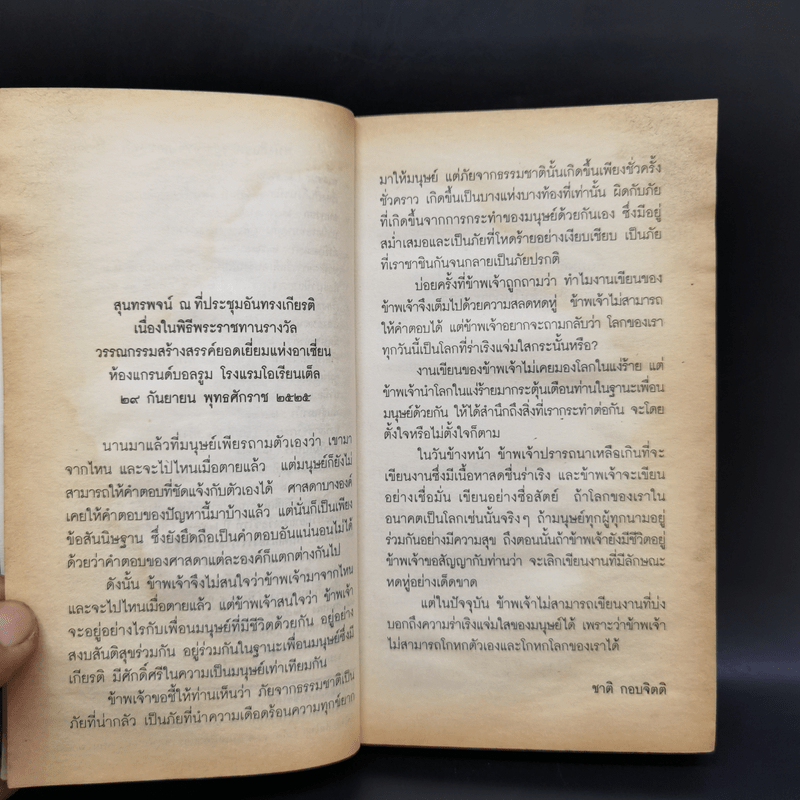 สุนทรพจน์ ณ ที่ประชุมอันทรงเกียรติ
เนื่องในพิธีพระราชทานรางวัล
วรรณกรรมสร้างสรรค์ยอดเยี่ยมแห่งอาเซียน
ห้องแกรนด์บอลรูม โรงแรมโอเรียนเต็ล
๒๙ กันยายน พุทธศักราช ๒๕๒๕
นานมาแล้วที่มนุษย์เพียรถามตัวเองว่า เขามา
จากไหน และจะไปไหนเมื่อตายแล้ว แต่มนุษย์ก็ยังไม่
สามารถให้คำตอบที่ชัดแจ้งกับตัวเองได้ ศาสดาบางองค์
เคยให้คำตอบของปัญหานี้มาบ้างแล้ว แต่นั่นก็เป็นเพียง
ข้อสันนิษฐาน ซึ่งยังยึดถือเป็นคำตอบอันแน่นอนไม่ได้
ด้วยว่าคำตอบของศาสดาแต่ละองค์ก็แตกต่างกันไป
ดังนั้น ข้าพเจ้าจึงไม่สนใจว่าข้าพเจ้ามาจากไหน
และจะไปไหนเมื่อตายแล้ว แต่ข้าพเจ้าสนใจว่า ข้าพเจ้า
จะอยู่อย่างไรกับเพื่อนมนุษย์ที่มีชีวิตด้วยกัน อยู่อย่าง
สงบสันติสุขร่วมกัน อยู่ร่วมกันในฐานะเพื่อนมนุษย์ซึ่งมี
เกียรติ มีศักดิ์ศรีในความเป็นมนุษย์เท่าเทียมกัน
ข้าพเจ้าขอชี้ให้ท่านเห็นว่า ภัยจากธรรมชาติเป็น
ภัยที่น่ากลัว เป็นภัยที่นำความเดือดร้อนความทุกข์ยาก
มาให้มนุษย์ แต่ภัยจากธรรมชาตินั้นเกิดขึ้นเพียงชั่วครั้ง
ชั่วคราว เกิดขึ้นเป็นบางแห่งบางท้องที่เท่านั้น ผิดกับภัย
ที่เกิดขึ้นจากการกระทำของมนุษย์ด้วยกันเอง ซึ่งมีอยู่
สม่ำเสมอและเป็นภัยที่โหดร้ายอย่างเงียบเชียบ เป็นภัย
ที่เราชาชินกันจนกลายเป็นภัยปรกติ
บ่อยครั้งที่ข้าพเจ้าถูกถามว่า ทำไมงานเขียนของ
ข้าพเจ้าจึงเต็มไปด้วยความสลดหดหู่ ข้าพเจ้าไม่สามารถ
ให้คำตอบได้ แต่ข้าพเจ้าอยากจะถามกลับว่า โลกของเรา
ทุกวันนี้เป็นโลกที่ร่าเริงแจ่มใสกระนั้นหรือ?
งานเขียนของข้าพเจ้าไม่เคยมองโลกในแง่ร้าย แต่
ข้าพเจ้านำโลกในแง่ร้ายมากระตุ้นเตือนท่านในฐานะเพื่อน
มนุษย์ด้วยกัน ให้ได้สำนึกถึงสิ่งที่เรากระทำต่อกัน จะโดย
ตั้งใจหรือไม่ตั้งใจก็ตาม
ในวันข้างหน้า ข้าพเจ้าปรารถนาเหลือเกินที่จะ
เขียนงานซึ่งมีเนื้อหาสดชื่นร่าเริง และข้าพเจ้าจะเขียน
อย่างเชื่อมั่น เขียนอย่างซื่อสัตย์ ถ้าโลกของเราใน
อนาคตเป็นโลกเช่นนั้นจริงๆ ถ้ามนุษย์ทุกผู้ทุกนามอยู่
ร่วมกันอย่างมีความสุข ถึงตอนนั้นถ้าข้าพเจ้ายังมีชีวิตอยู่
ข้าพเจ้าขอสัญญากับท่านว่า จะเลิกเขียนงานที่มีลักษณะ
หดหู่อย่างเด็ดขาด
แต่ในปัจจุบัน ข้าพเจ้าไม่สามารถเขียนงานที่บ่ง
บอกถึงความร่าเริงแจ่มใสของมนุษย์ได้ เพราะว่าข้าพเจ้า
ไม่สามารถโกหกตัวเองและโกหกโลกของเราได้
ชาติ กอบจิตติ